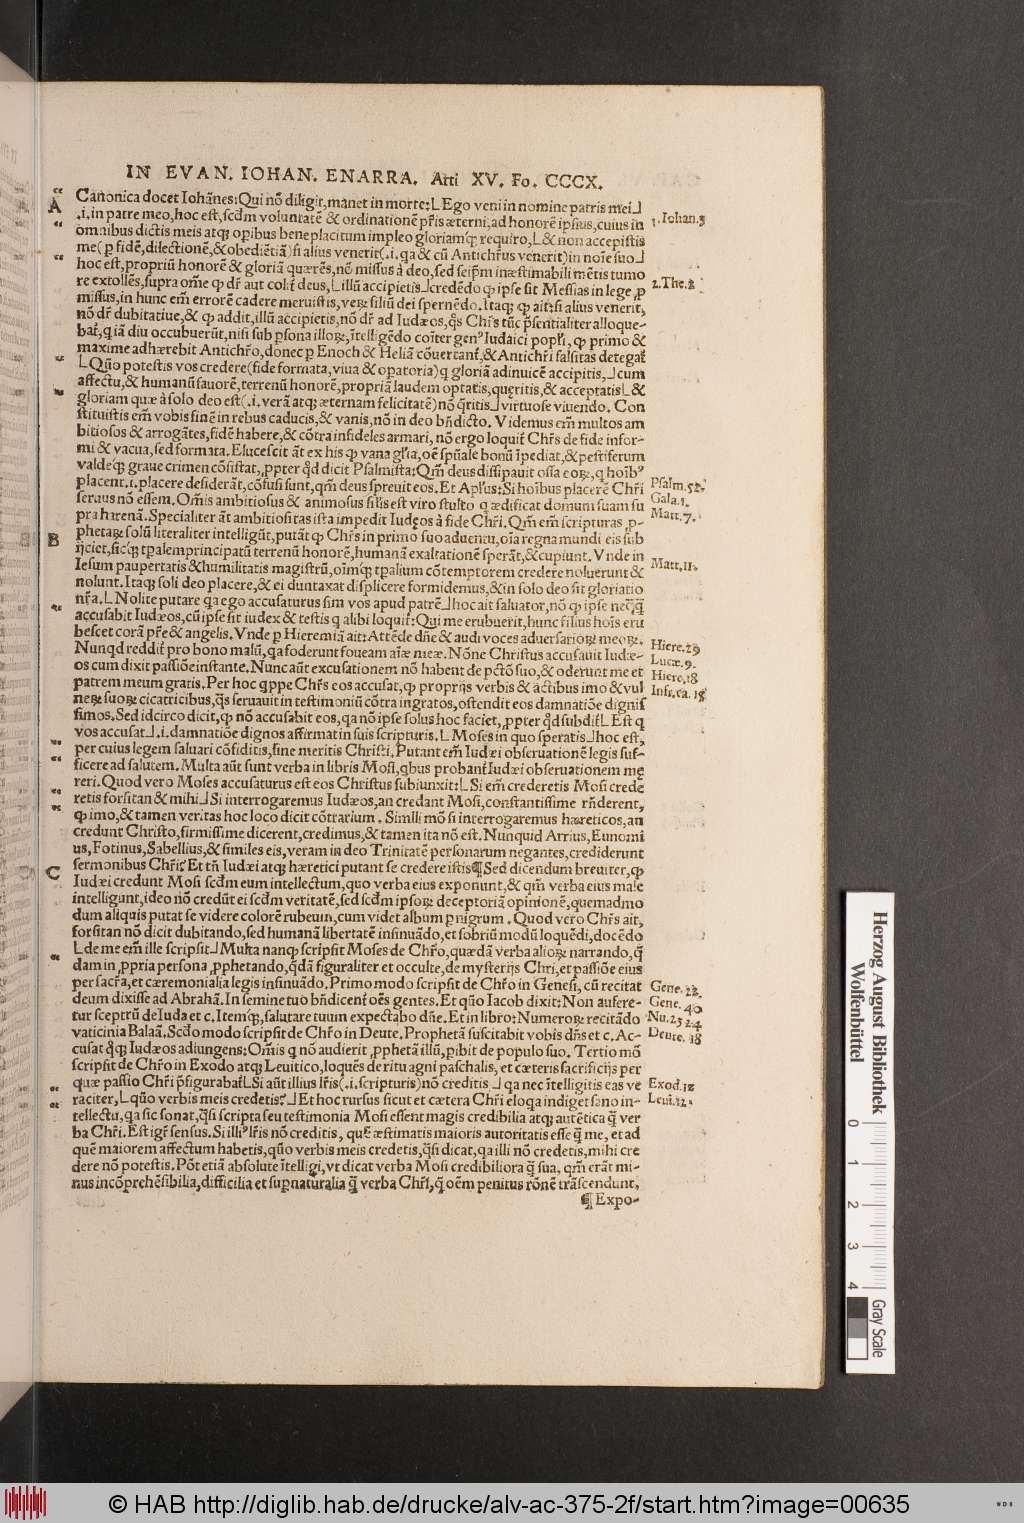 IN EVAN. IOHAN. ENARRA. Arti XV. Fo. CCCX.
A
Canonica docet Iohānes: Qui nō diligit, manet in morte: L Ego veni in nomine patris mei⅃
.i. in patre meo, hoc est, scd̄m voluntatē & ordinationē pr̄is æterni, ad honorē ipsius, cuius in
omnibus dictis meis atq; opibus beneplacitum impleo gloriamq; requiro, L & non accepistis
me (p fidē, dilectionē, & obediētiā) si alius venerit (.i. qa & cū Antichr̄us venerit) in noīe suo⅃
hoc est, propriū honorē & gloriā quærēs, nō missus à deo, sed seip̄m inæstimabili mētis tumo
re extollēs, supra om̄e qp dr̄ aut colit̄ deus, L illū accipietis⅃ credēdo qp ipse sit Messias in lege p
missus, in hunc em̄ errorē cadere meruistis, veꝝ filiū dei spernēdo. Itaq; qp ait: si alius venerit,
nō dr̄ dubitatiue, & qp addit, illū accipietis, nō dr̄ ad Iudæos, qs Chr̄s tūc p̄sentialiter alloque-
bat̄, q iā diu occubuerūt, nisi sub psona illoꝝ, ītelligēdo coīter genꝰ Iudaici popl̄i, qp primo &
maxime adhærebit Antichr̄o, donec p Enoch & Heliā cōuertant̄, & Antichr̄i falsitas detegat̄
L Qūo potestis vos credere (fide formata, viua & opatoria) q gloriā adinuicē accipitis, ⅃ cum
affectu, & humanū fauorē, terrenū honorē, propriā laudem optatis, quęritis, & acceptatis L &
gloriam quæ à solo deo est (.i. verā atq; æternam felicitatē) nō q̄ritis⅃ virtuose viuendo. Con
stituistis em̄ vobis finē in rebus caducis, & vanis, nō in deo bn̄dicto. Videmus em̄ multos am
bitiosos & arrogātes, fidē habere, & cōtra infideles armari, nō ergo loquit̄ Chr̄s de fide infor-
mi & vacua, sed formata. Elucescit āt ex his qp vana gl̄ia, oē spūale bonū īpediat, & pestiferum
valdeq; graue crimen cōsistat, ppter qd̄ dicit Psalmista: Qm̄ deus dissipauit ossa eoꝝ, q hoībꝰ
placent .i. placere desiderāt, cōfusi sunt, qm̄ deus spreuit eos. Et Apl̄us: Si hoībus placerē Chr̄i
seruus nō essem. Om̄is ambitiosus & animosus silis est viro stulto q ædificat domum suam su
pra harenā. Specialiter āt ambitiositas ista impedit Iudęos à fide Chr̄i. Qm̄ em̄ scripturas p-
B
phetaꝝ solū literaliter intelligūt, putāt qp Chr̄s in primo suo aduentu, oīa regna mundi eis sub
ijciet, sicq; tpalem principatū terrenū honorē, humanā exaltationē sperāt, & cupiunt. Vnde in
Iesum paupertatis & humilitatis magistrū, oīmq; tpalium cōtemptorem credere noluerunt &
nolunt. Itaq; soli deo placere, & ei duntaxat displicere formidemus, & in solo deo sit gloriatio
nr̄a. L Nolite putare qa ego accusaturus sim vos apud patrē⅃ hoc ait saluator, nō qp ipse neq̄q̄
accusabit Iudæos, cū ipse sit iudex & testis q alibi loquit̄: Qui me erubuerit, hunc filius hoīs eru
bescet corā pr̄e & angelis. Vnde p Hieremiā ait: Attēde dn̄e & audi voces aduersarioꝝ meoꝝ.
Nunqd reddit̄ pro bono malū, qa foderunt foueam aīæ meæ. Nōne Christus accusauit Iudæ-
os cum dixit passiōe instante. Nunc aūt excusationem nō habent de pctō suo, & oderunt me et
patrem meum gratis. Per hoc qppe Chr̄s eos accusat, qp proprijs verbis & actibus imo & vul
neꝝ suoꝝ cicatricibus, q̄s seruauit in testimoniū cōtra ingratos, ostendit eos damnatiōe dignis
simos. Sed idcirco dicit, qp nō accusabit eos, qa nō ipse solus hoc faciet, ppter qd̄ subdit̄ L Est q
vos accusat⅃ .i. damnatiōe dignos affirmat in suis scripturis. L Moses in quo speratis⅃ hoc est,
per cuius legem saluari cōfiditis, sine meritis Christi. Putant em̄ Iudæi obseruationē legis suf-
ficere ad salutem. Multa aūt sunt verba in libris Mosi, qbus probant̄ Iudæi obseruationem me
reri. Quod vero Moses accusaturus est eos Christus subiunxit: L Si em̄ crederetis Mosi crede
retis forsitan & mihi⅃ Si interrogaremus Iudæos, an credant Mosi, constantissime rn̄derent,
qp imo, & tamen veritas hoc loco dicit cōtrarium. Simili mō si interrogaremus hæreticos, an
credunt Christo, firmissime dicerent, credimus, & tamen ita nō est. Nunquid Arrius, Eunomi
us, Fotinus, Sabellius, & similes eis, veram in deo Trinitatē personarum negantes, crediderunt
C
sermonibus Chr̄i? Et tn̄ Iudæi atq; hæretici putant se credere istis ¶ Sed dicendum breuiter, qp
Iudæi credunt Mosi scd̄m eum intellectum, quo verba eius exponunt, & qm̄ verba eius male
intelligunt, ideo nō credūt ei scd̄m veritatē, sed scd̄m ipsoꝝ deceptoriā opinionē, quemadmo
dum aliquis putat se videre colorē rubeum, cum videt album p nigrum. Quod vero Chr̄s ait,
forsitan nō dicit dubitando, sed humanā libertatē insinuādo, et sobriū modū loquēdi, docēdo
L de me em̄ ille scripsit⅃ Multa nanq; scripsit Moses de Chr̄o, quædā verba alioꝝ narrando, q̄
dam in ppria persona pphetando, q̄dā figuraliter et occulte, de mysterijs Chr̄i, et passiōe eius
per sacr̄a, et cæremonialia legis insinuādo. Primo modo scripsit de Chr̄o in Genesi, cū recitat
deum dixisse ad Abrahā. In semine tuo bn̄dicent̄ oēs gentes. Et qūo Iacob dixit: Non aufere-
tur sceptrū de Iuda et c. Itemq;, salutare tuum expectabo dn̄e. Et in libro: Numeroꝝ recitādo
vaticinia Balaā. Scdo modo scripsit de Chr̄o in Deute. Prophetā suscitabit vobis dn̄s et c. Ac-
cusat q̄q; Iudæos adiungens: Om̄is q nō audierit pphetā illū, pibit de populo suo. Tertio mō
scripsit de Chr̄o in Exodo atq; Leuitico, loquēs de ritu agni paschalis, et cæteris sacrificijs per
quæ passio Chr̄i p̄figurabat̄ L Si aūt illius lr̄is (.i. scripturis) nō creditis ⅃ qa nec ītelligitis eas ve
raciter, L qūo verbis meis credetis?⅃ Et hoc rursus sicut et cætera Chr̄i eloqa indiget sano in-
tellectu, qa sic sonat, q̄si scripta seu testimonia Mosi essent magis credibilia atq; autētica q̄ ver
ba Chr̄i. Est igr̄ sensus. Si illiꝰ lr̄is nō creditis, quē æstimatis maioris autoritatis esse q̄ me, et ad
quē maiorem affectum habetis, qūo verbis meis credetis, q̄si dicat, qa illi nō credetis, mihi cre
dere nō potestis. Pōt etiā absolute ītelligi, vt dicat verba Mosi credibiliora q̄ sua, qm̄ erāt mi-
nus incōprehēsibilia, difficilia et supnaturalia q̄ verba Chr̄i, q̄ oēm penitus rōnē trāscendunt,
¶ Expo-
1. Iohan. 3
2. The. 2
Psalm. 52.
Gala. 1.
Matt. 7.
Matt. 11.
Hiere. 29
Lucæ. 9.
Hiere. 18
Infr. ca. 15
Gene. 22.
Gene. 40
Nu. 23 24
Deute. 18
Exod. 12
Leui. 12.
Herzog August Bibliothek
Wolfenbüttel
0 1 2 3 4
Gray Scale
© HAB http://diglib.hab.de/drucke/alv-ac-375-2f/start.htm?image=00635